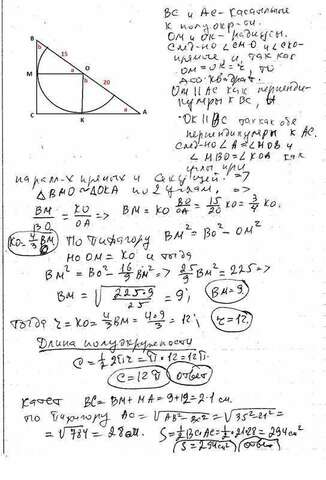 B
b
15
M
a
O
b
20
a
a
C
K
A
BC и AC - касательные
к полуокр-си.
OM и OK - радиусы.
След-но ∠CMO и ∠CKO-
прямые, и так как
OM = OK = r, то
OM || AC как перпенди-
куляры к BC, и
OK || BC так как оба
перпендикуляры к AC.
След-но ∠A = ∠MOB и
∠MBO = ∠KOA как
углы при
парал-х прямых и секущей. =>
△BMO ~ △OKA по 2 углам, =>
BM/BO = KO/OA => BM = KO BO/OA = 15/20 KO = 3/4 KO.
KO = 4/3 BM По Пифагору BM² = BO² - OM²
но OM = KO и тогда
BM² = BO² - 16/9 BM² => 25/9 BM² = 225 =>
BM = √(225·9/25) = 9; BM = 9.
тогда r = KO = 4/3 BM = 4·9/3 = 12; r = 12.
Длина полуокружности
C = 1/2 2πr = π·12 = 12π.
C = 12π ответ
катет BC = BM + MA = 9 + 12 = 21 см.
по Пифагору AC = √(AB² - BC²) = √(35² - 21²) =
= √784 = 28 см. S = 1/2 BC·AC = 1/2·21·28 = 294 см²
S = 294 см² ответ